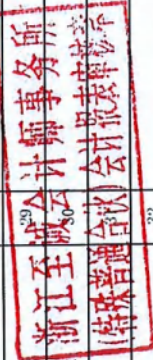 浙江至诚会计师事务所
(特殊普通合伙)会计报表审核章
29
30
31
32